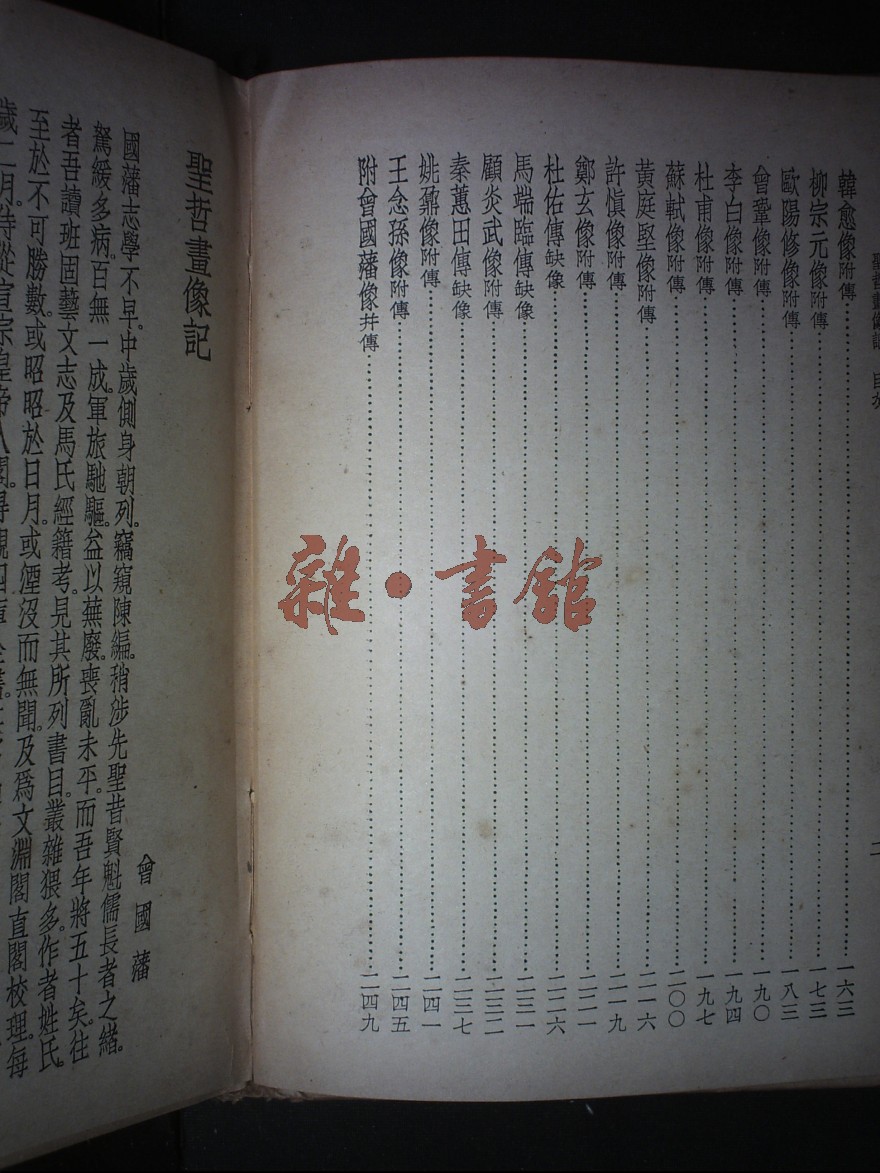 聖哲畫像記 目次
二
韓愈像附傳 一六三
柳宗元像附傳 一七三
歐陽修像附傳 一八三
曾鞏像附傳 一九〇
李白像附傳 一九四
杜甫像附傳 一九七
蘇軾像附傳 二〇〇
黃庭堅像附傳 二一六
許慎像附傳 二一九
鄭玄像附傳 二二一
杜佑傳缺像 二二六
馬端臨傳缺像 二三一
顧炎武像附傳 二三二
秦蕙田傳缺像 二三七
姚鼐像附傳 二四一
王念孫像附傳 二四五
附曾國藩像并傳 二四九
雜·書館
聖哲畫像記
曾國藩
國藩志學不早。中歲側身朝列。竊窺陳編。稍涉先聖昔賢魁儒長者之緒。
駑緩多病。百無一成。軍旅馳驅。益以蕪廢。喪亂未平。而吾年將五十矣。往
者吾讀班固藝文志及馬氏經籍考。見其所列書目。叢雜猥多。作者姓氏。
至於不可勝數。或昭昭於日月。或煙沒而無聞。及為文淵閣直閣校理。每
歲二月。侍從宣宗皇帝入閣。得觀四庫全書。